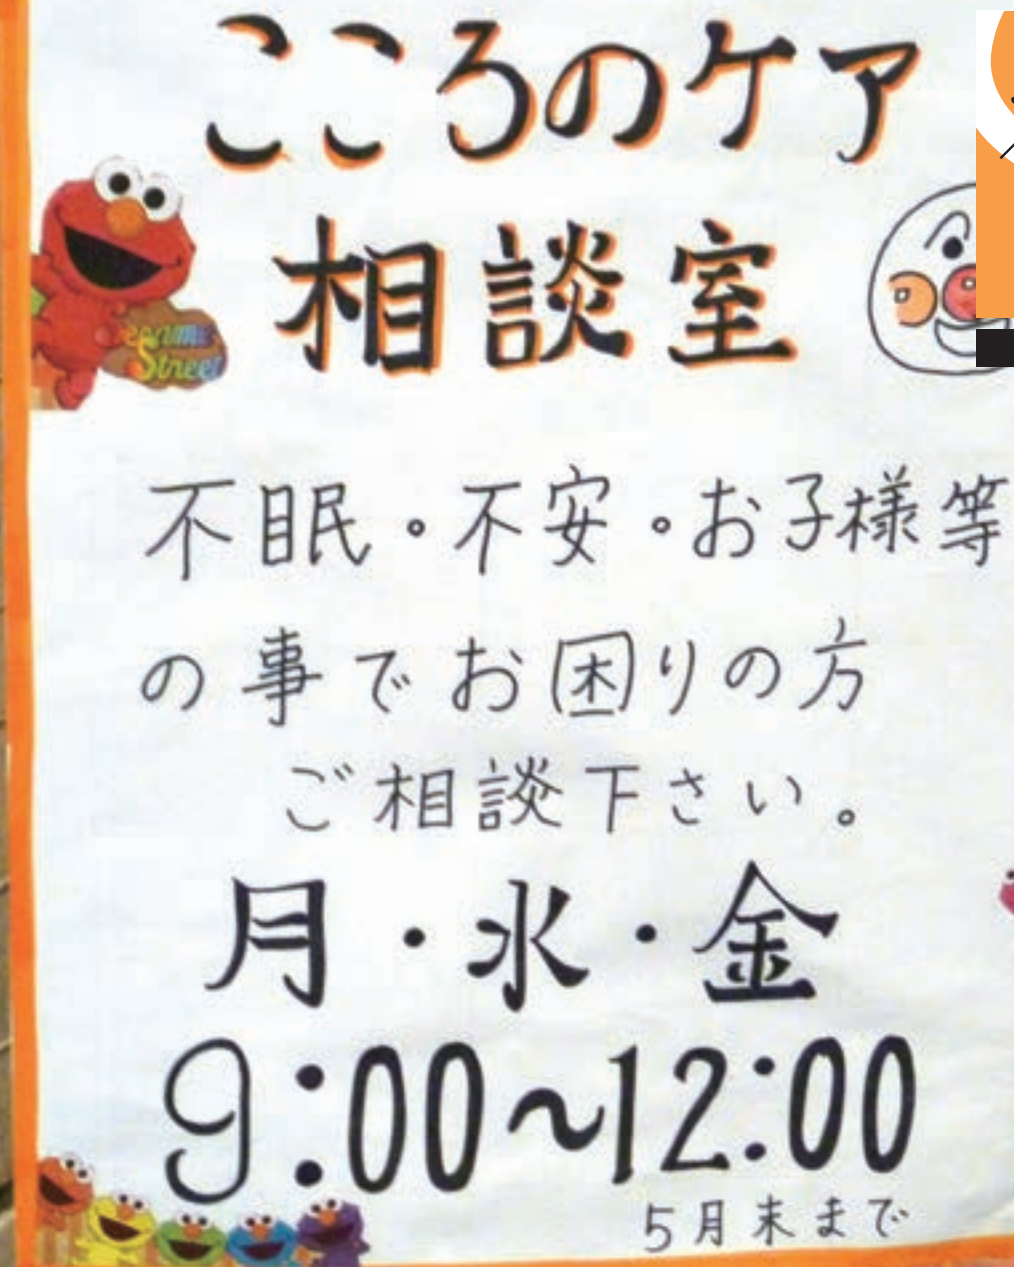 こころのケア
相談室
Sesame
Street
不眠・不安・お子様等
の事でお困りの方
ご相談下さい。
月・水・金
9:00~12:00
5月末まで